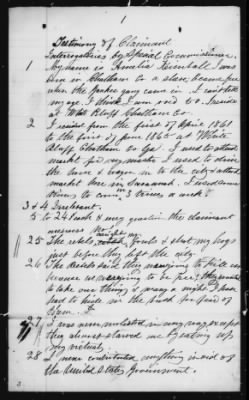 1
Testimony of Claimant
Interrogatories by Special Commissioner.
1 My name is Kimball I was
born in Chatham Co a slave, became free
when the Yankee army came in. I can't tell
my age. I think I am Reside
at White Bluff Chatham Co.
2 I resided from the first of April 1861
to the first of June 1865 at White
Bluff Chatham Co Ga. I used to attend
market for my master I used to drive
the horse & wagon in to the city & attend
market here in Savannah. I
times to come 3 times a week
3 & 4 Irrelevant.
5 to 24 Each & every question the claimant
answers No
25 The rebels caught my fowls & shot my hogs
just before they left the city.
26 The Rebels said they
to take our things & many a night I have
had to hide in the for fear of
them.
27 I was never molested in any way, except
they almost starved me by eating up
my victuals.
28 I never contributed anything in aid of
the United States Government.